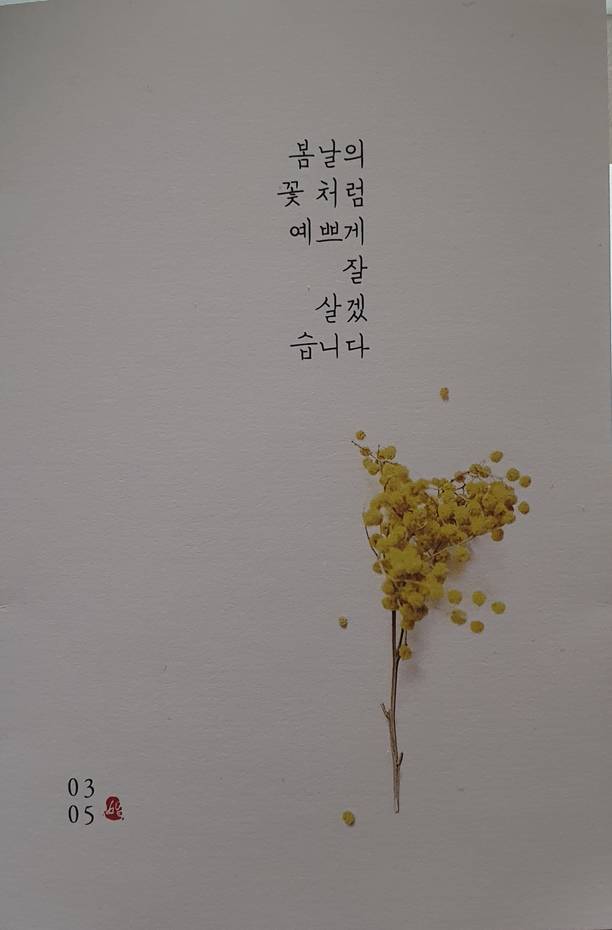 봄날의
꽃 처럼
예쁘게
잘
살겠
습니다
03
05